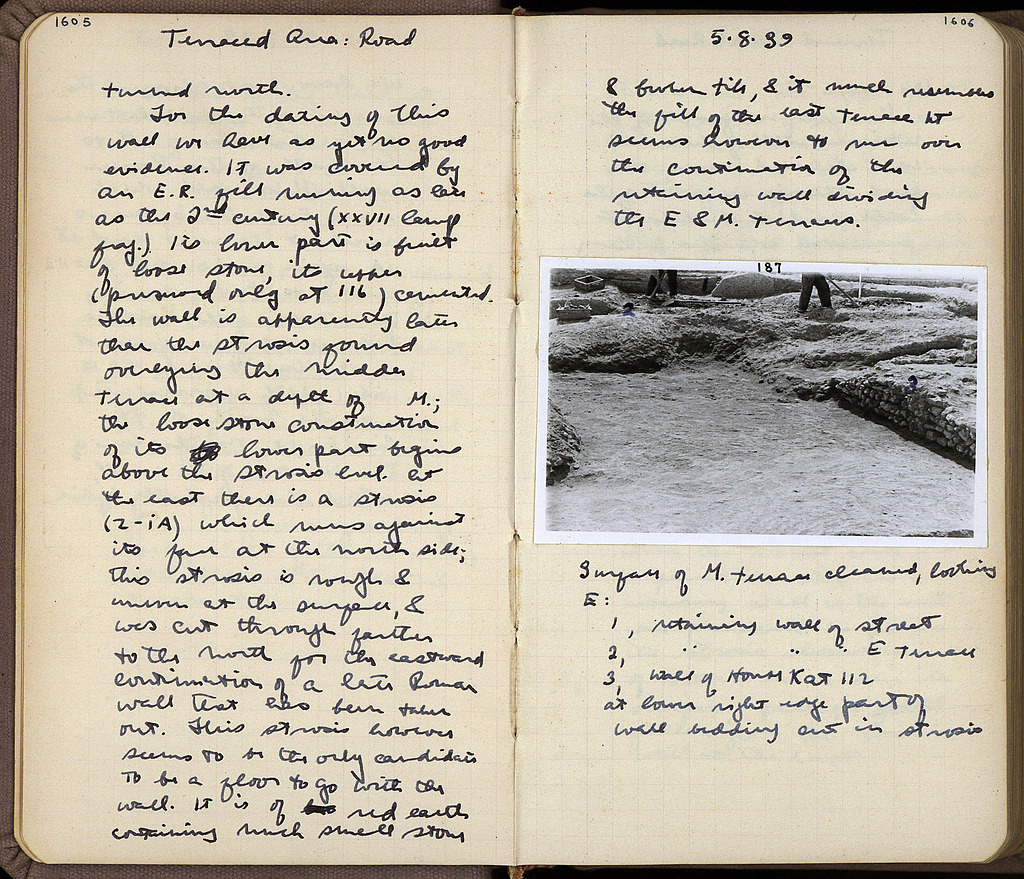 1605
Terraced Area: Road
turned north.
For the dating of this
wall we have as yet no good
evidence. It was covered by
an E.R. fill running as late
as the 2nd century (XXVII lamp
frag.) Its lower part is built
of loose stone, its upper
(preserved only at 116) cemented.
The wall is apparently later
than the strosis found
overlying the middle
Terrace at a depth of M.;
the loose stone construction
of its lower part begins
above the strosis level. at
the east there is a strosis
(2-1A) which runs against
its face at the north side;
this strosis is rough &
uneven at the surface, &
was cut through farther
to the north for the eastward
continuation of a late Roman
wall that has been taken
out. This strosis however
seems to be the only candidate
to be a floor to go with the
wall. It is of red earth
containing much small stone
1606
5.8.39
& broken tile, & it much resembles
the fill of the east Terrace It
seems however to run over
the continuation of the
retaining wall dividing
the E & M. Terraces.
187
2
3
Surface of M. terrace cleaned, looking
E:
1, retaining wall of street
2, " " " E Terrace
3, wall of House K at 112
at lower right edge part of
wall bedding cut in strosis